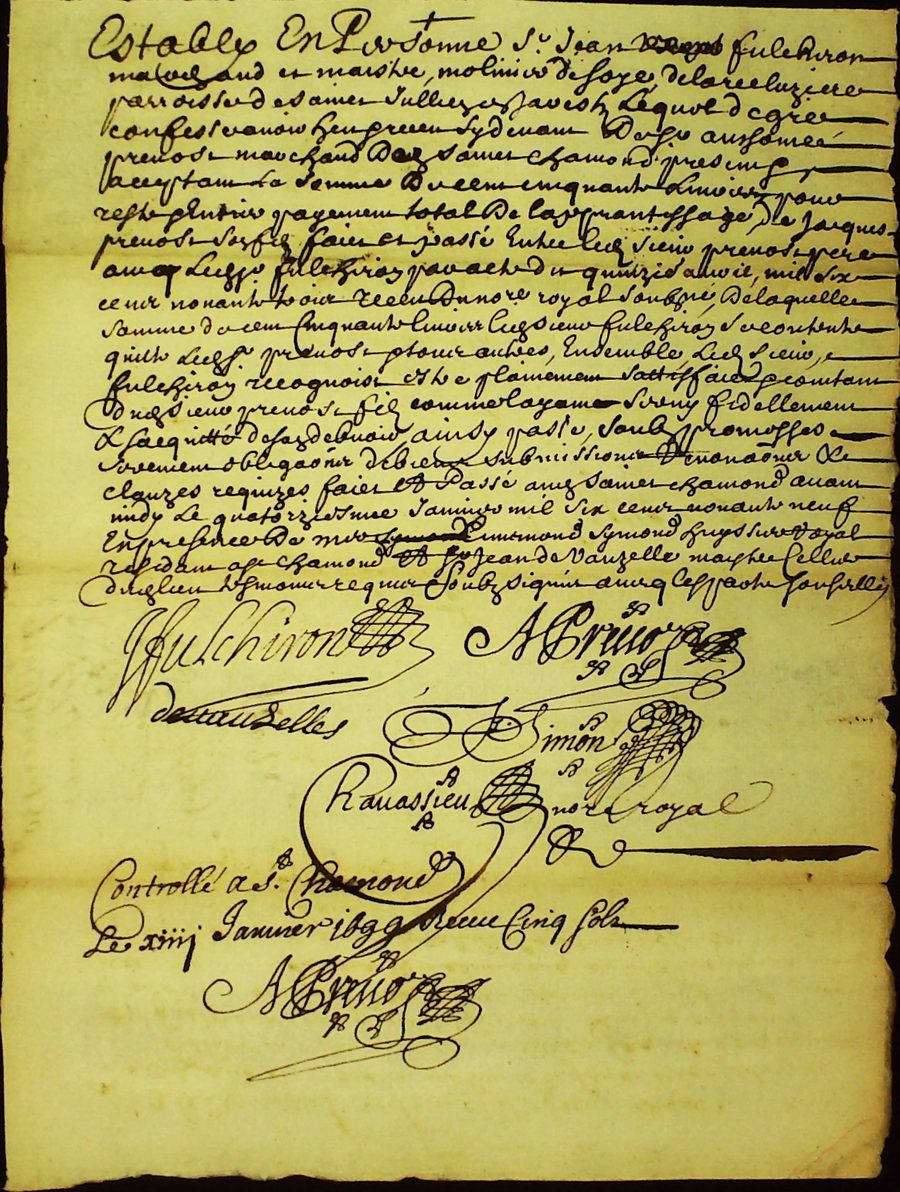 Estably En Personne Sr Jean fulchiron
marchand et maistre molinier de soye de la reeluziere
parroisse de sainct Jullien en Javestz Lequel de gré
confesse avoir heu et receu cydevant De sr anthoine
prevost marchand dudt sainct chamond present
acceptant La somme De cent cinquante Livres pour
reste et Entier payement total De laprantissage, de Jacques
prevost son filz faict et passé Entre ledt sieur prevost pere
avecq Ledt sr fulchiron par acte du quinziesme avril, mil six
cent nonante trois receu Du nore royal soubzné, De laquelle
somme de cent Cinquante livres ledt sieur fulchiron se contente
quitte Ledt sr prevost et tous autres, Ensemble Ledt sieur
fulchiron recognoist estre plainement sattisfaict contant
dudt sieur prevost filz comme layant servy fidellement
& sacquitté de son debvoir, ainsy passé, soubz promesses
serement obligaons de biens submissions Renonaons &
clauzes requizes faict Et Passé audt sainct chamond avant
midy Le quatorziesme Janvier mil six cent nonante neuf
En presence De mre simmond Symond huyssier royal
residant a st chamond Et sr Jean de Vauzelle maistre
dudt lieu tesmoins requis Soubzsignés avecq les parties
JFulchiron APrevo
devauzelles
Simon
Chavassieu nore royal
Controllé a St. Chamond
Le xiiij Janvier 1699 Receu Cinq sols
APrevo